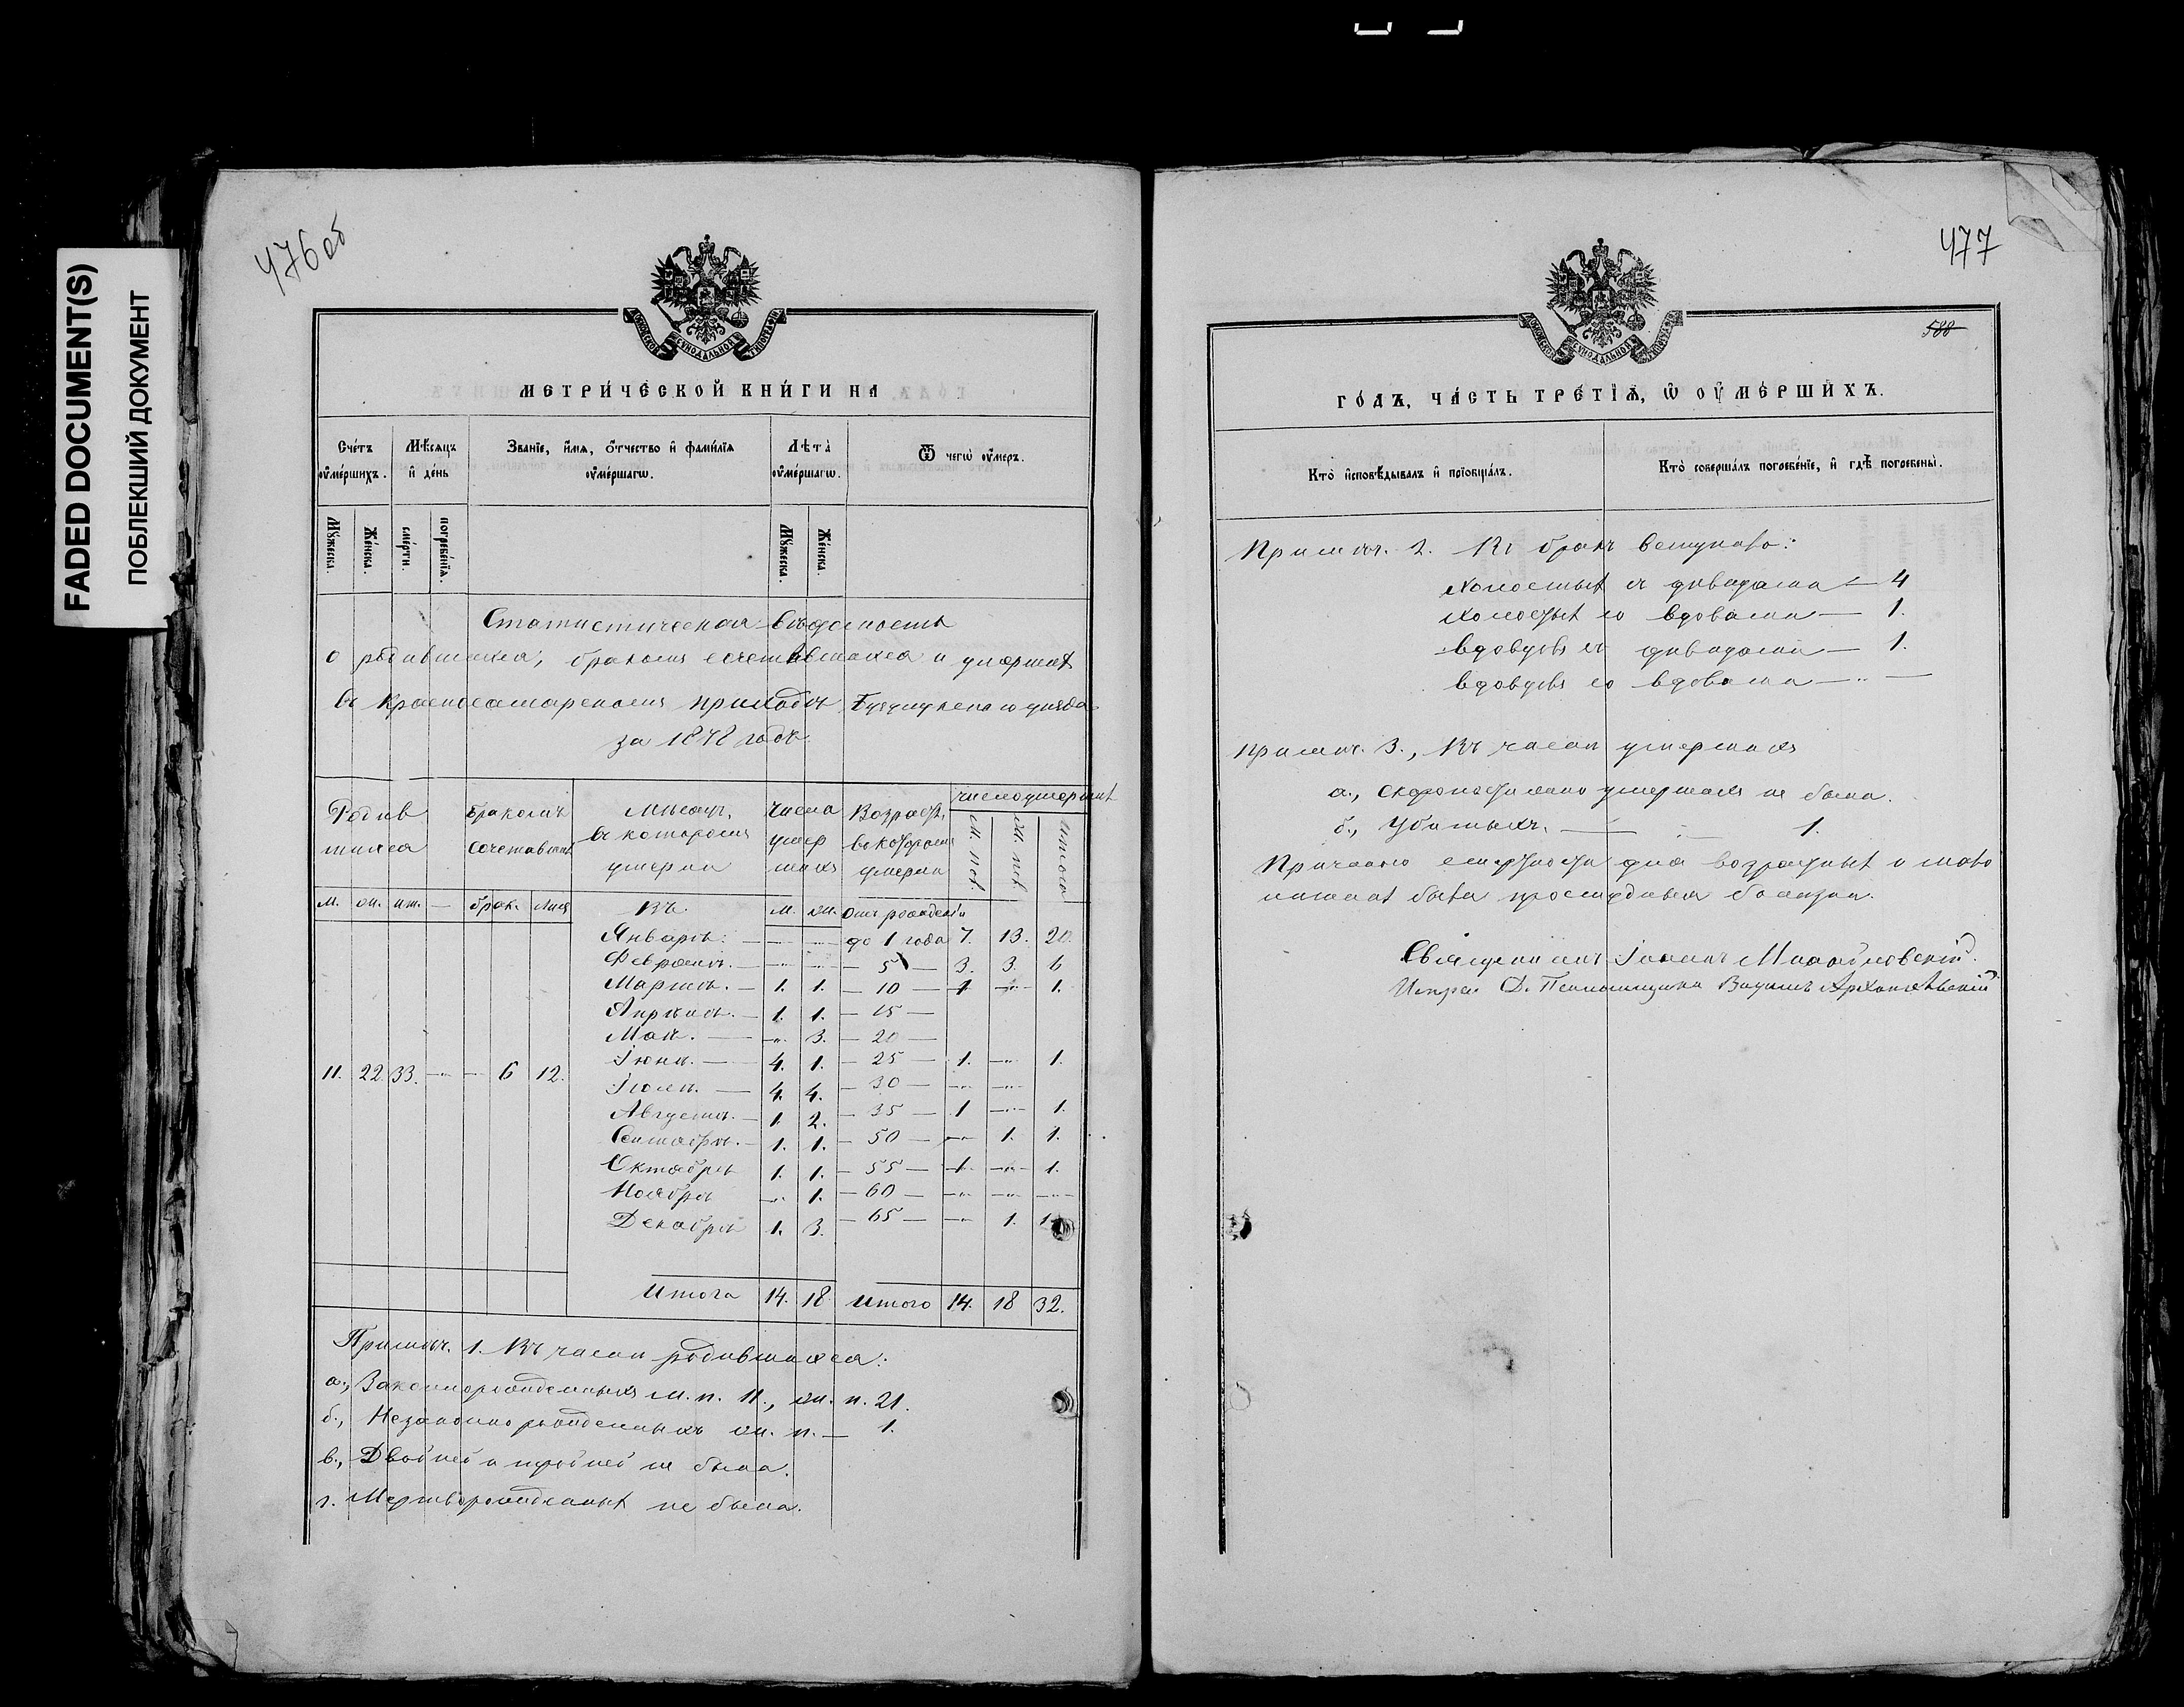 FADED DOCUMENT(S)
ПОБЛЕКШИЙ ДОКУМЕНТ
476об
МОСКОВСКОЙ СѴНОДАЛЬНОЙ ТИПОГРАФІИ
МЕТРИ́ЧЕСКОЙ КНИ́ГИ НА
Сче́тъ оу҆ме́ршихъ.
Мѣ́сяцъ и҆ де́нь
Зва́нїе, и҆́мѧ, ѻ҆́тчество и҆ фами́лїѧ оу҆ме́ршагѡ.
Лѣ́та̀ оу҆ме́ршагѡ.
Ѿ чегѡ̀ оу҆́меръ.
Мꙋ́жеска.
Же́нска.
сме́рти.
погребе́нїѧ.
Мꙋ́жеска.
Же́нска.
Статистическая вѣдомость
о родившихся, бракомъ сочетавшихся и умершихъ
въ Красносамарскомъ приходѣ Бузулукскаго уѣзда
за 1878 годъ.
Родив шихся
бракомъ сочетавших
Мѣсяцъ, въ которомъ умерли
Число умер шихъ
Возрастъ, въ которомъ умерли
число умершихъ
М. пол.
Ж. пол.
Итого
м. ж. ит. — брак. лиц
Въ
м. ж. отъ рожденія
Январѣ. — — до 1 года 7. 13. 20.
Февралѣ. — — — 5 — 3. 3. 6
Мартѣ. — 1. 1. — 10 — 1 — 1.
Апрѣлѣ. — 1. 1. — 15 —
Маѣ. — „ 3. — 20 —
Іюнѣ. — 4. 1. — 25 — 1. — 1.
11. 22. 33. — — 6 12.
Іюлѣ. — 4. 4. — 30 — — —
Августѣ. — 1. 2. — 35 — 1 — 1.
Сентябрѣ. — 1. 1. — 50 — — 1. 1.
Октябрѣ 1. 1. — 55 — 1. — 1.
Ноябрѣ „ 1. — 60 — — — —
Декабрѣ 1. 3. — 65 — — 1. 1.
Итого 14. 18. Итого 14. 18 32.
Примѣч. 1. Въ числѣ родившихся:
а., Законнорожденныхъ м. п. 11., ж. п. 21.
б., Незаконно рожденныхъ ж. п. — 1.
в., Двойней и тройней не было.
г. Мертворожденныхъ не было.
477
МОСКОВСКОЙ СѴНОДАЛЬНОЙ ТИПОГРАФІИ
588
ГО́ДЪ, ЧА́СТЬ ТРЕ́ТЇѦ, Ѡ҆ ОУ҆МЕ́РШИХЪ.
Кто̀ и҆сповѣ́дывалъ и҆ прїѡбща́лъ.
Кто̀ соверша́лъ погребе́нїе, и҆ гдѣ̀ погребены̀.
Примѣч. 2. Въ бракъ вступило:
холостыхъ съ дѣвицами — 4
холостыхъ со вдовами — 1.
вдовцовъ съ дѣвицами — 1.
вдовцовъ со вдовами — „ —
Примѣч. 3., Въ числѣ умершихъ
а., Скоропостижно умершихъ не было.
б., Убитыхъ. — — 1.
Причиною смертности для возрастныхъ и мало
лѣтнихъ были простудныя болѣзни.
Священникъ Іоаннъ Михайловскій.
Испр. Д. Псаломщика Вадимъ Архангельскій